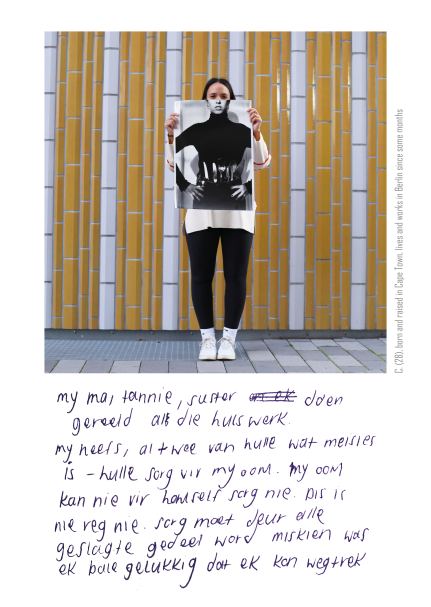 C. (28), born and raised in Cape Town, lives and works in Berlin since some months
my ma, tannie, suster en ek doen
gereeld als die huiswerk.
my neefs, al twee van hulle wat meisies
is - hulle sorg vir my oom. my oom
kan nie vir homself sorg nie. Dis is
nie reg nie. sorg moet deur alle
geslagte gedeel word miskien was
ek baie gelukkig dat ek kon wegtrek